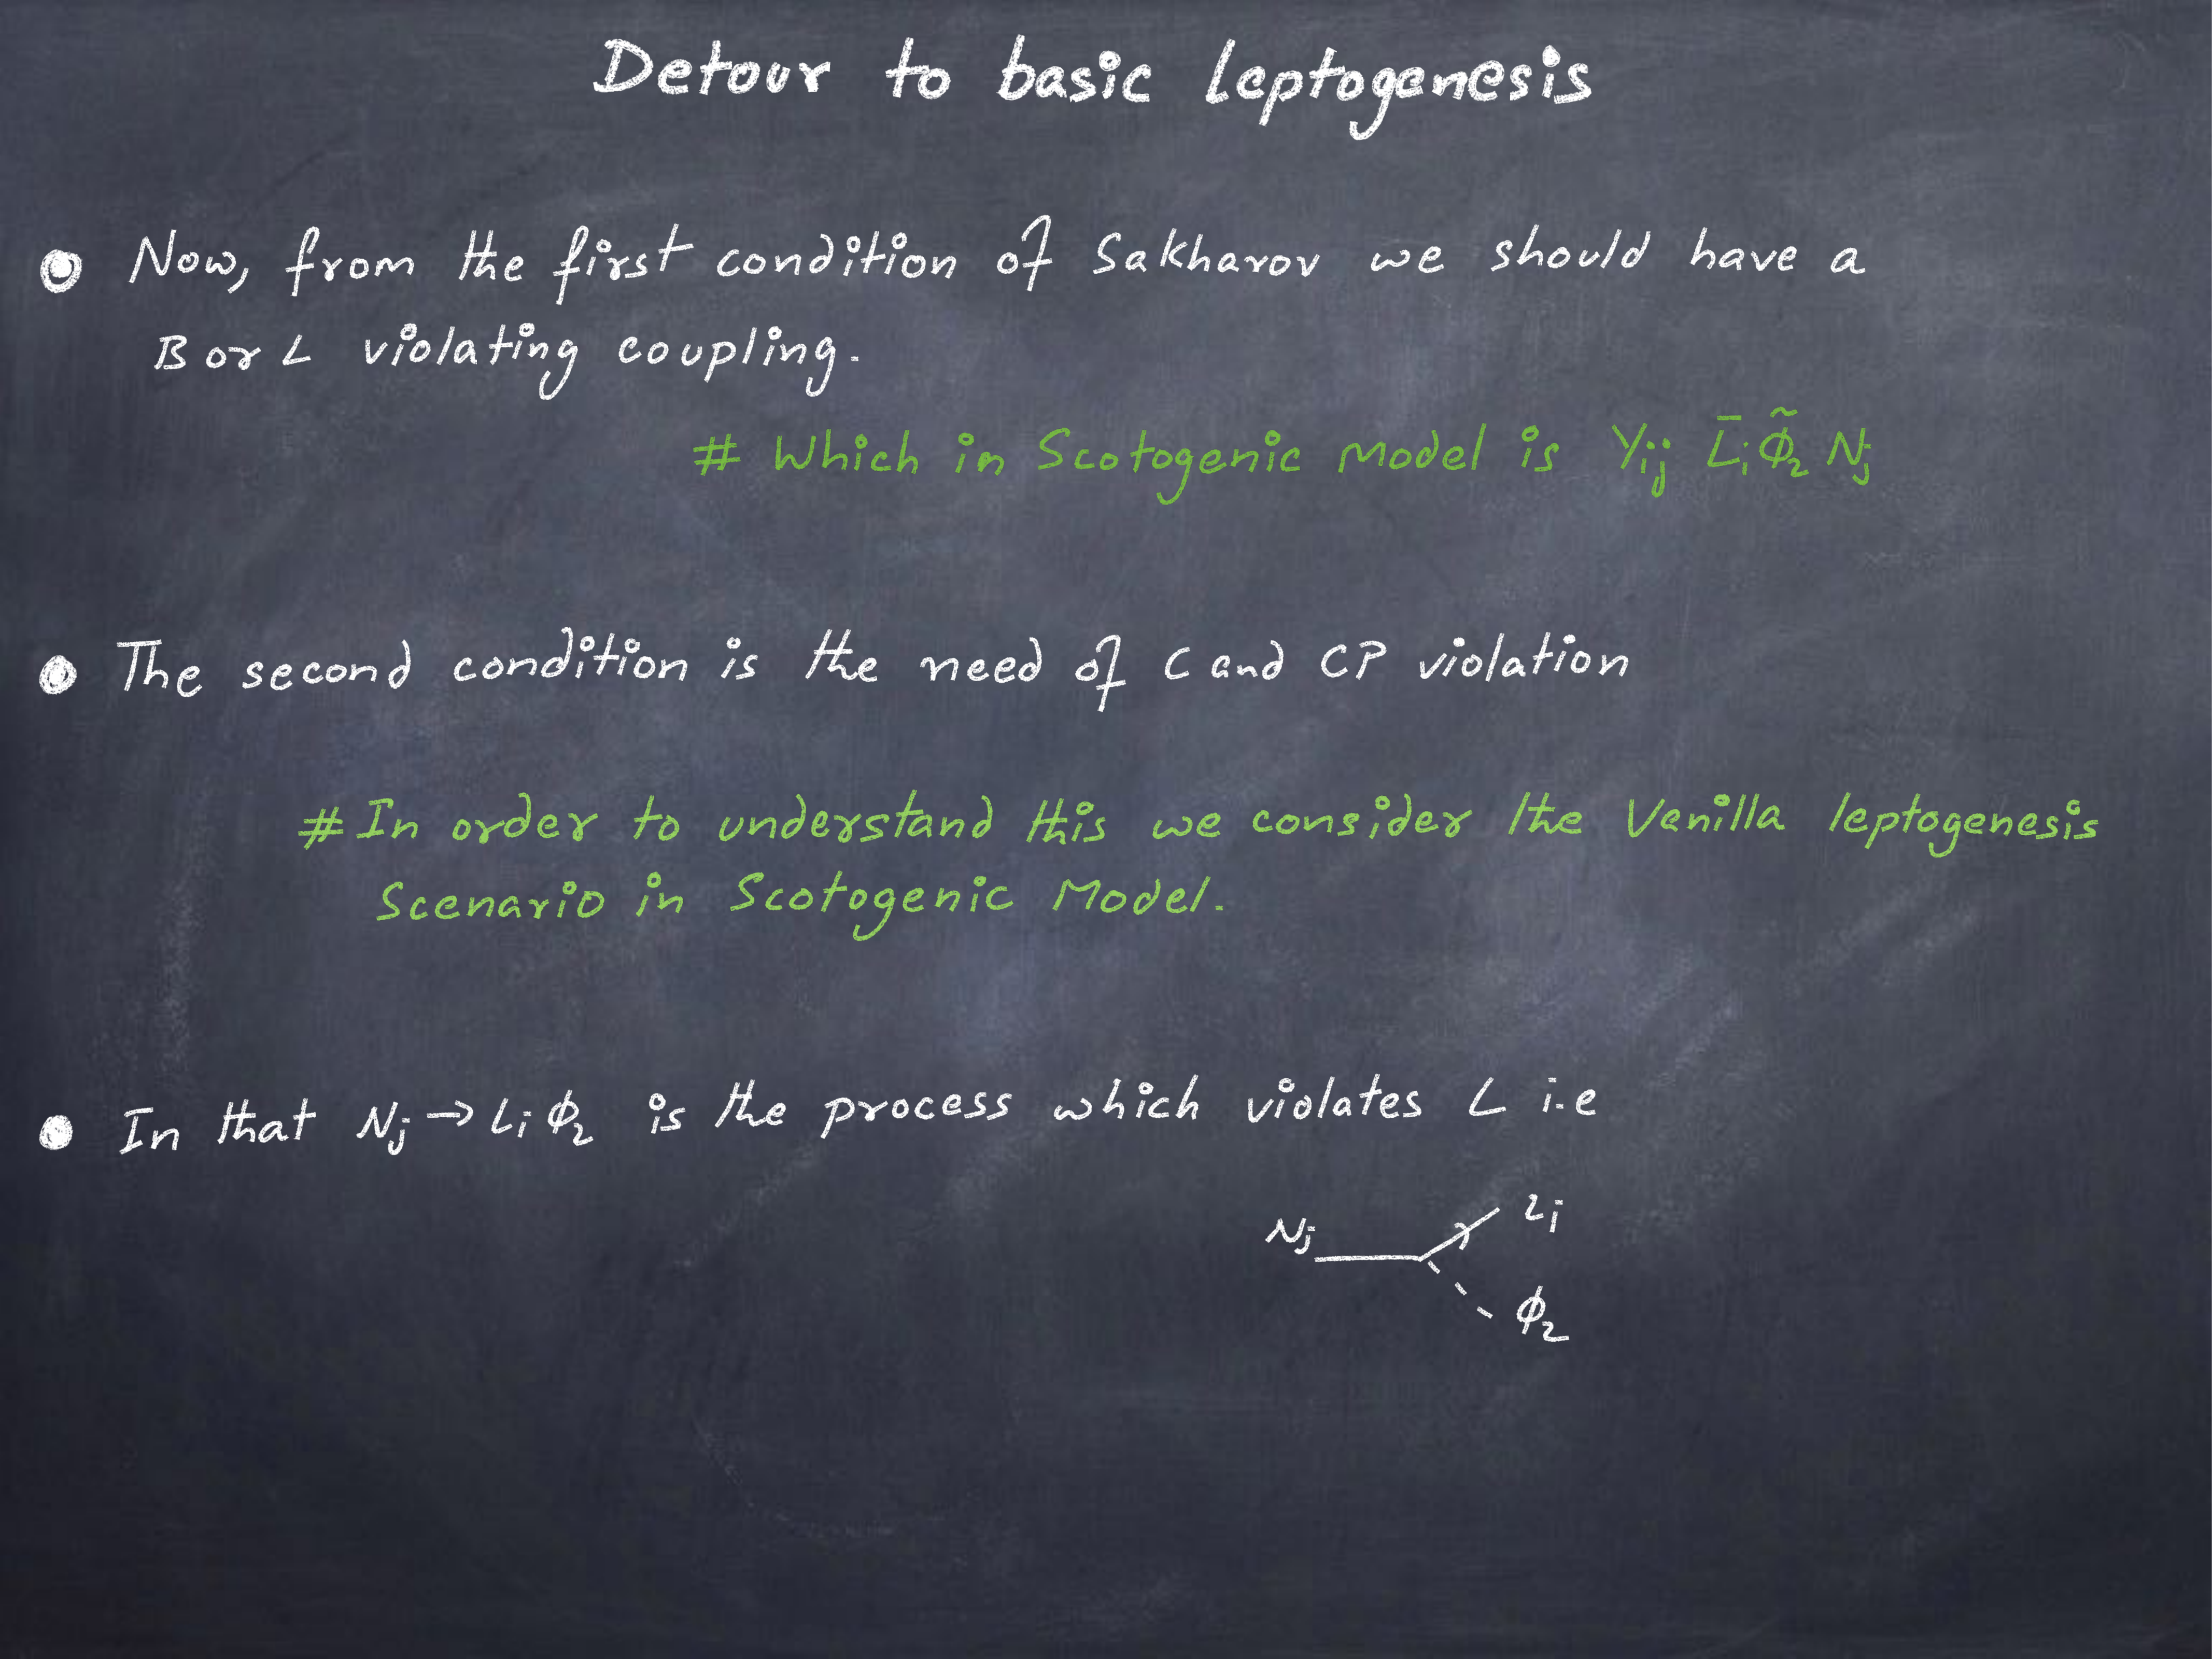 Detour to basic leptogenesis
Now, from the first condition of Sakharov we should have a
B or L violating coupling.
# Which in Scotogenic Model is Yij L̄i Φ̃2 Nj
The second condition is the need of C and CP violation
# In order to understand this we consider the Vanilla leptogenesis
Scenario in Scotogenic Model.
In that Nj → Li Φ2 is the process which violates L i.e
Nj
Li
Φ2